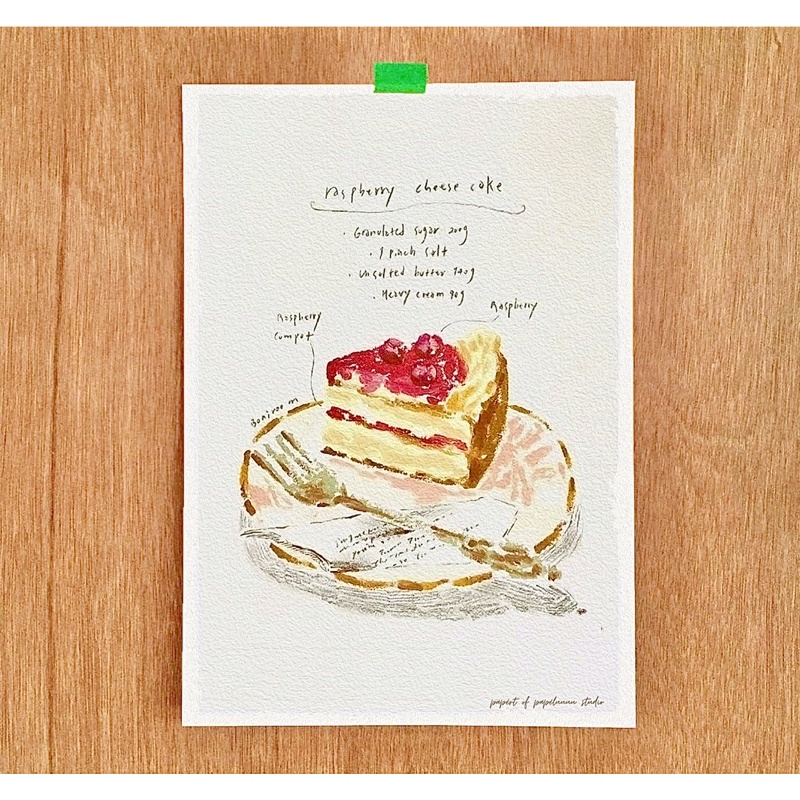 raspberry cheese cake
· Granulated sugar 200g
· 1 pinch salt
· Unsalted butter 140g
· Heavy cream 90g
Raspberry
Raspberry
compot
Bonjroom
papert of papelunuu studio